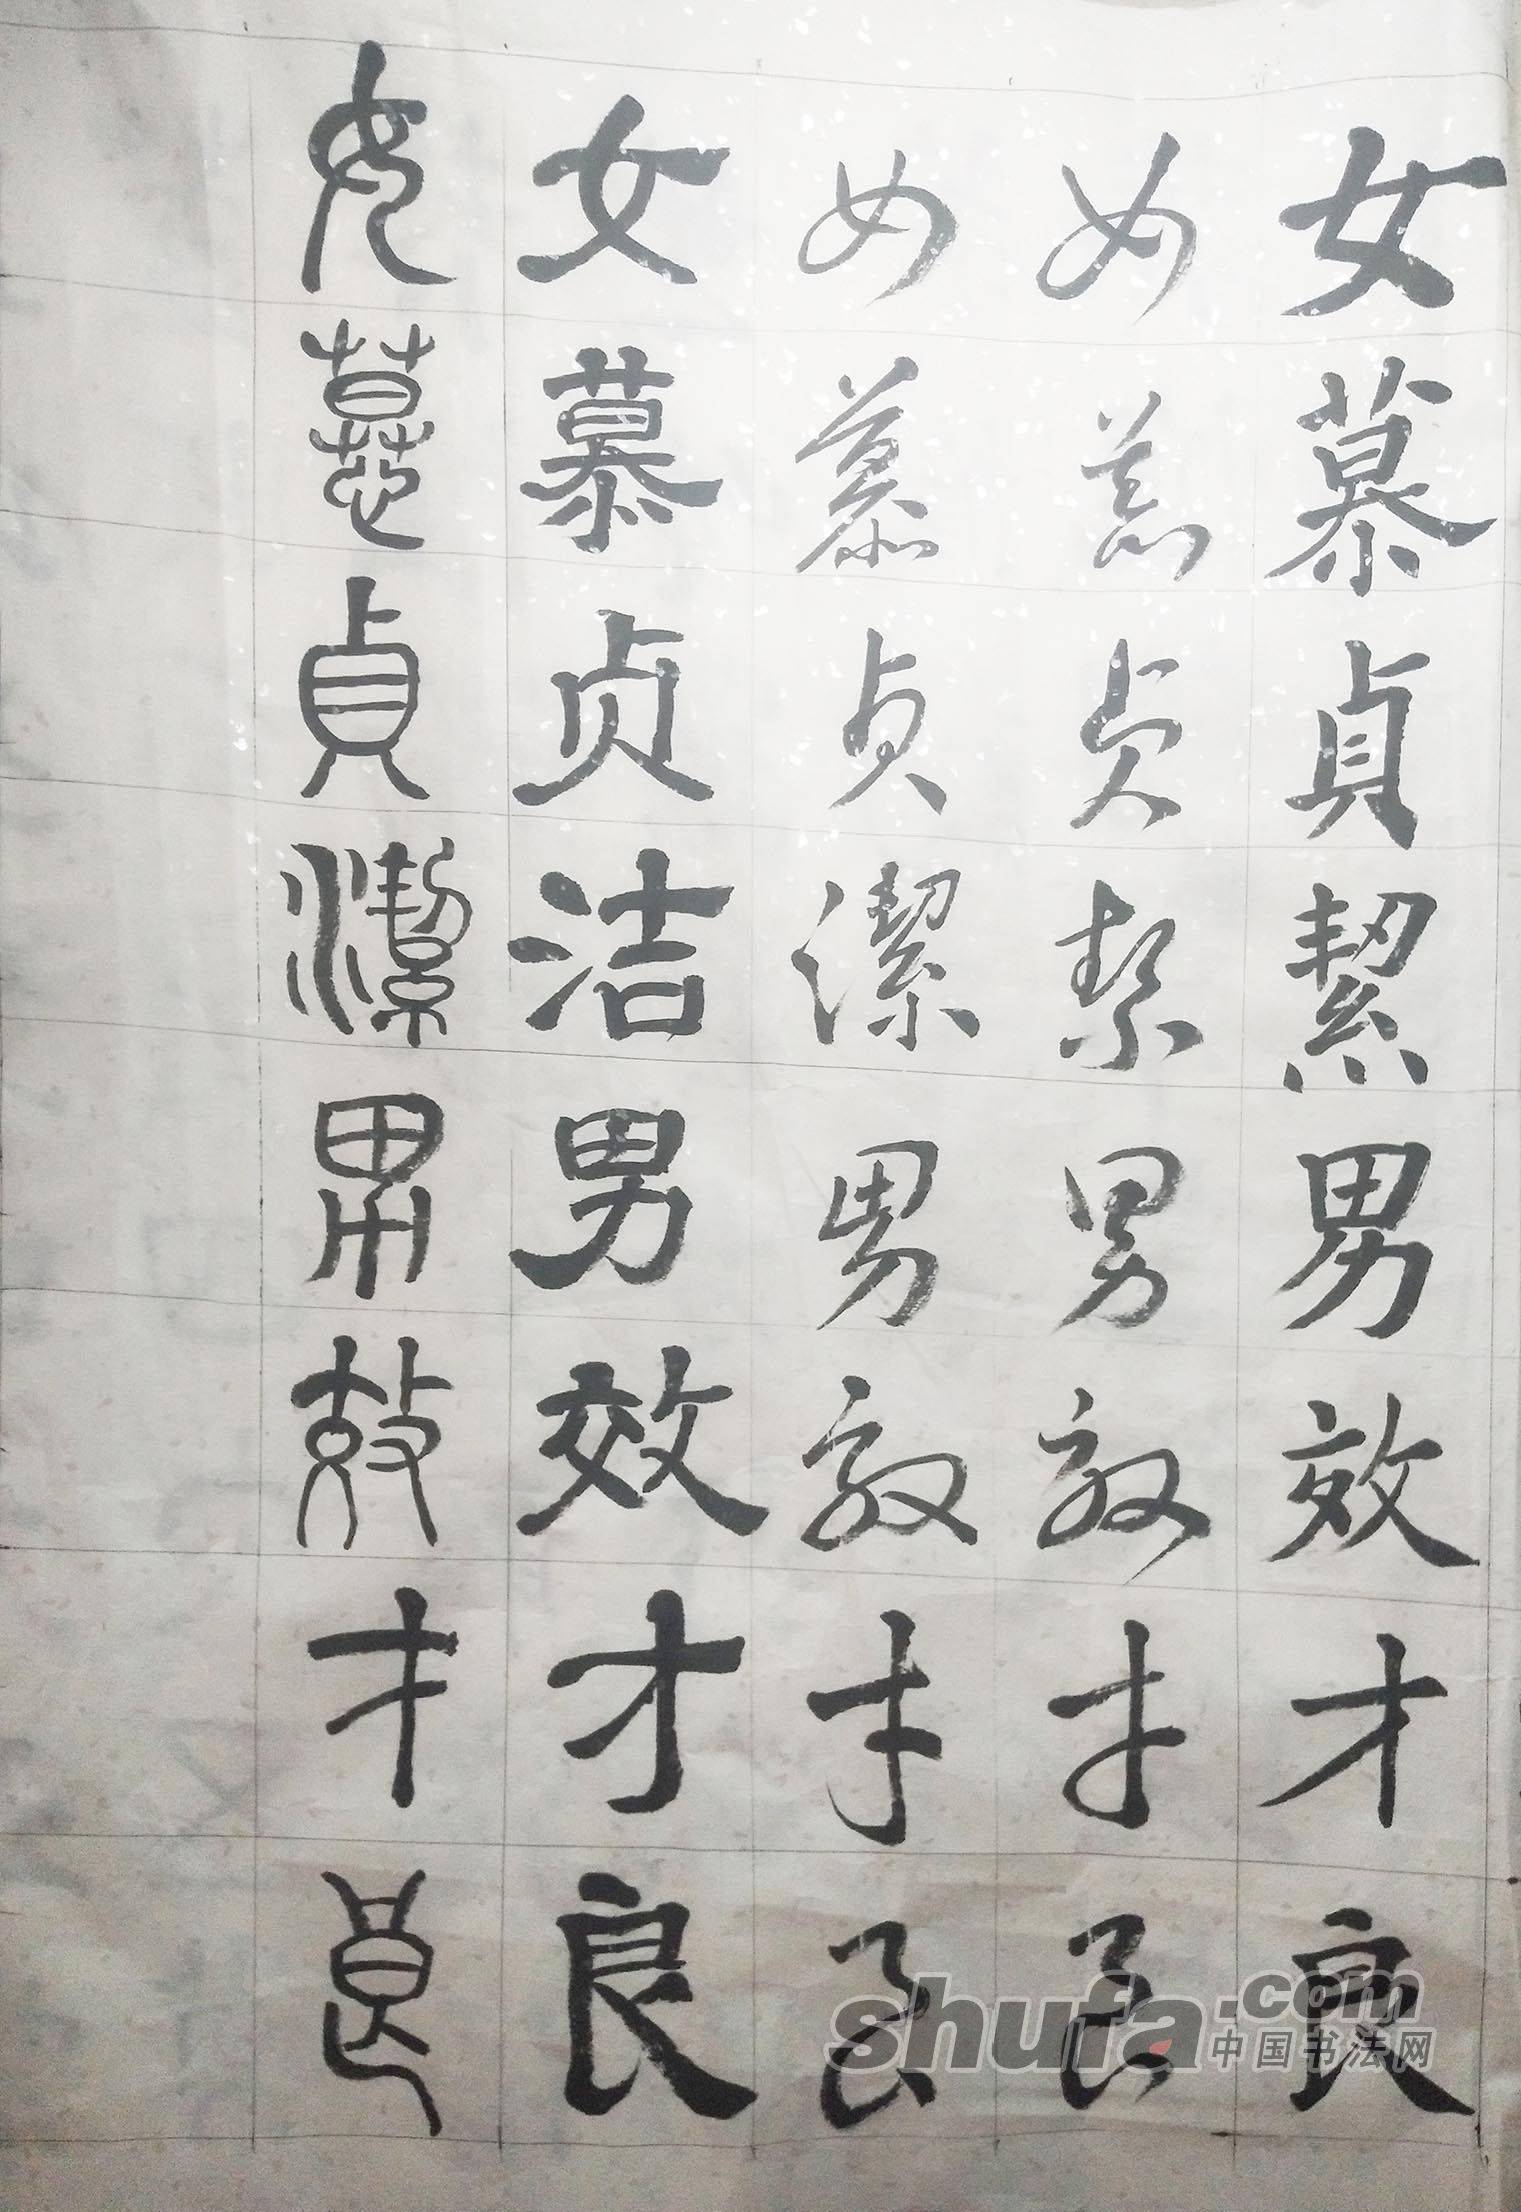 女慕貞絜男效才良
女慕貞絜男效才良
女慕貞潔男效才良
女慕贞洁男效才良
女慕貞潔男效才良
shufa.com
中国书法网